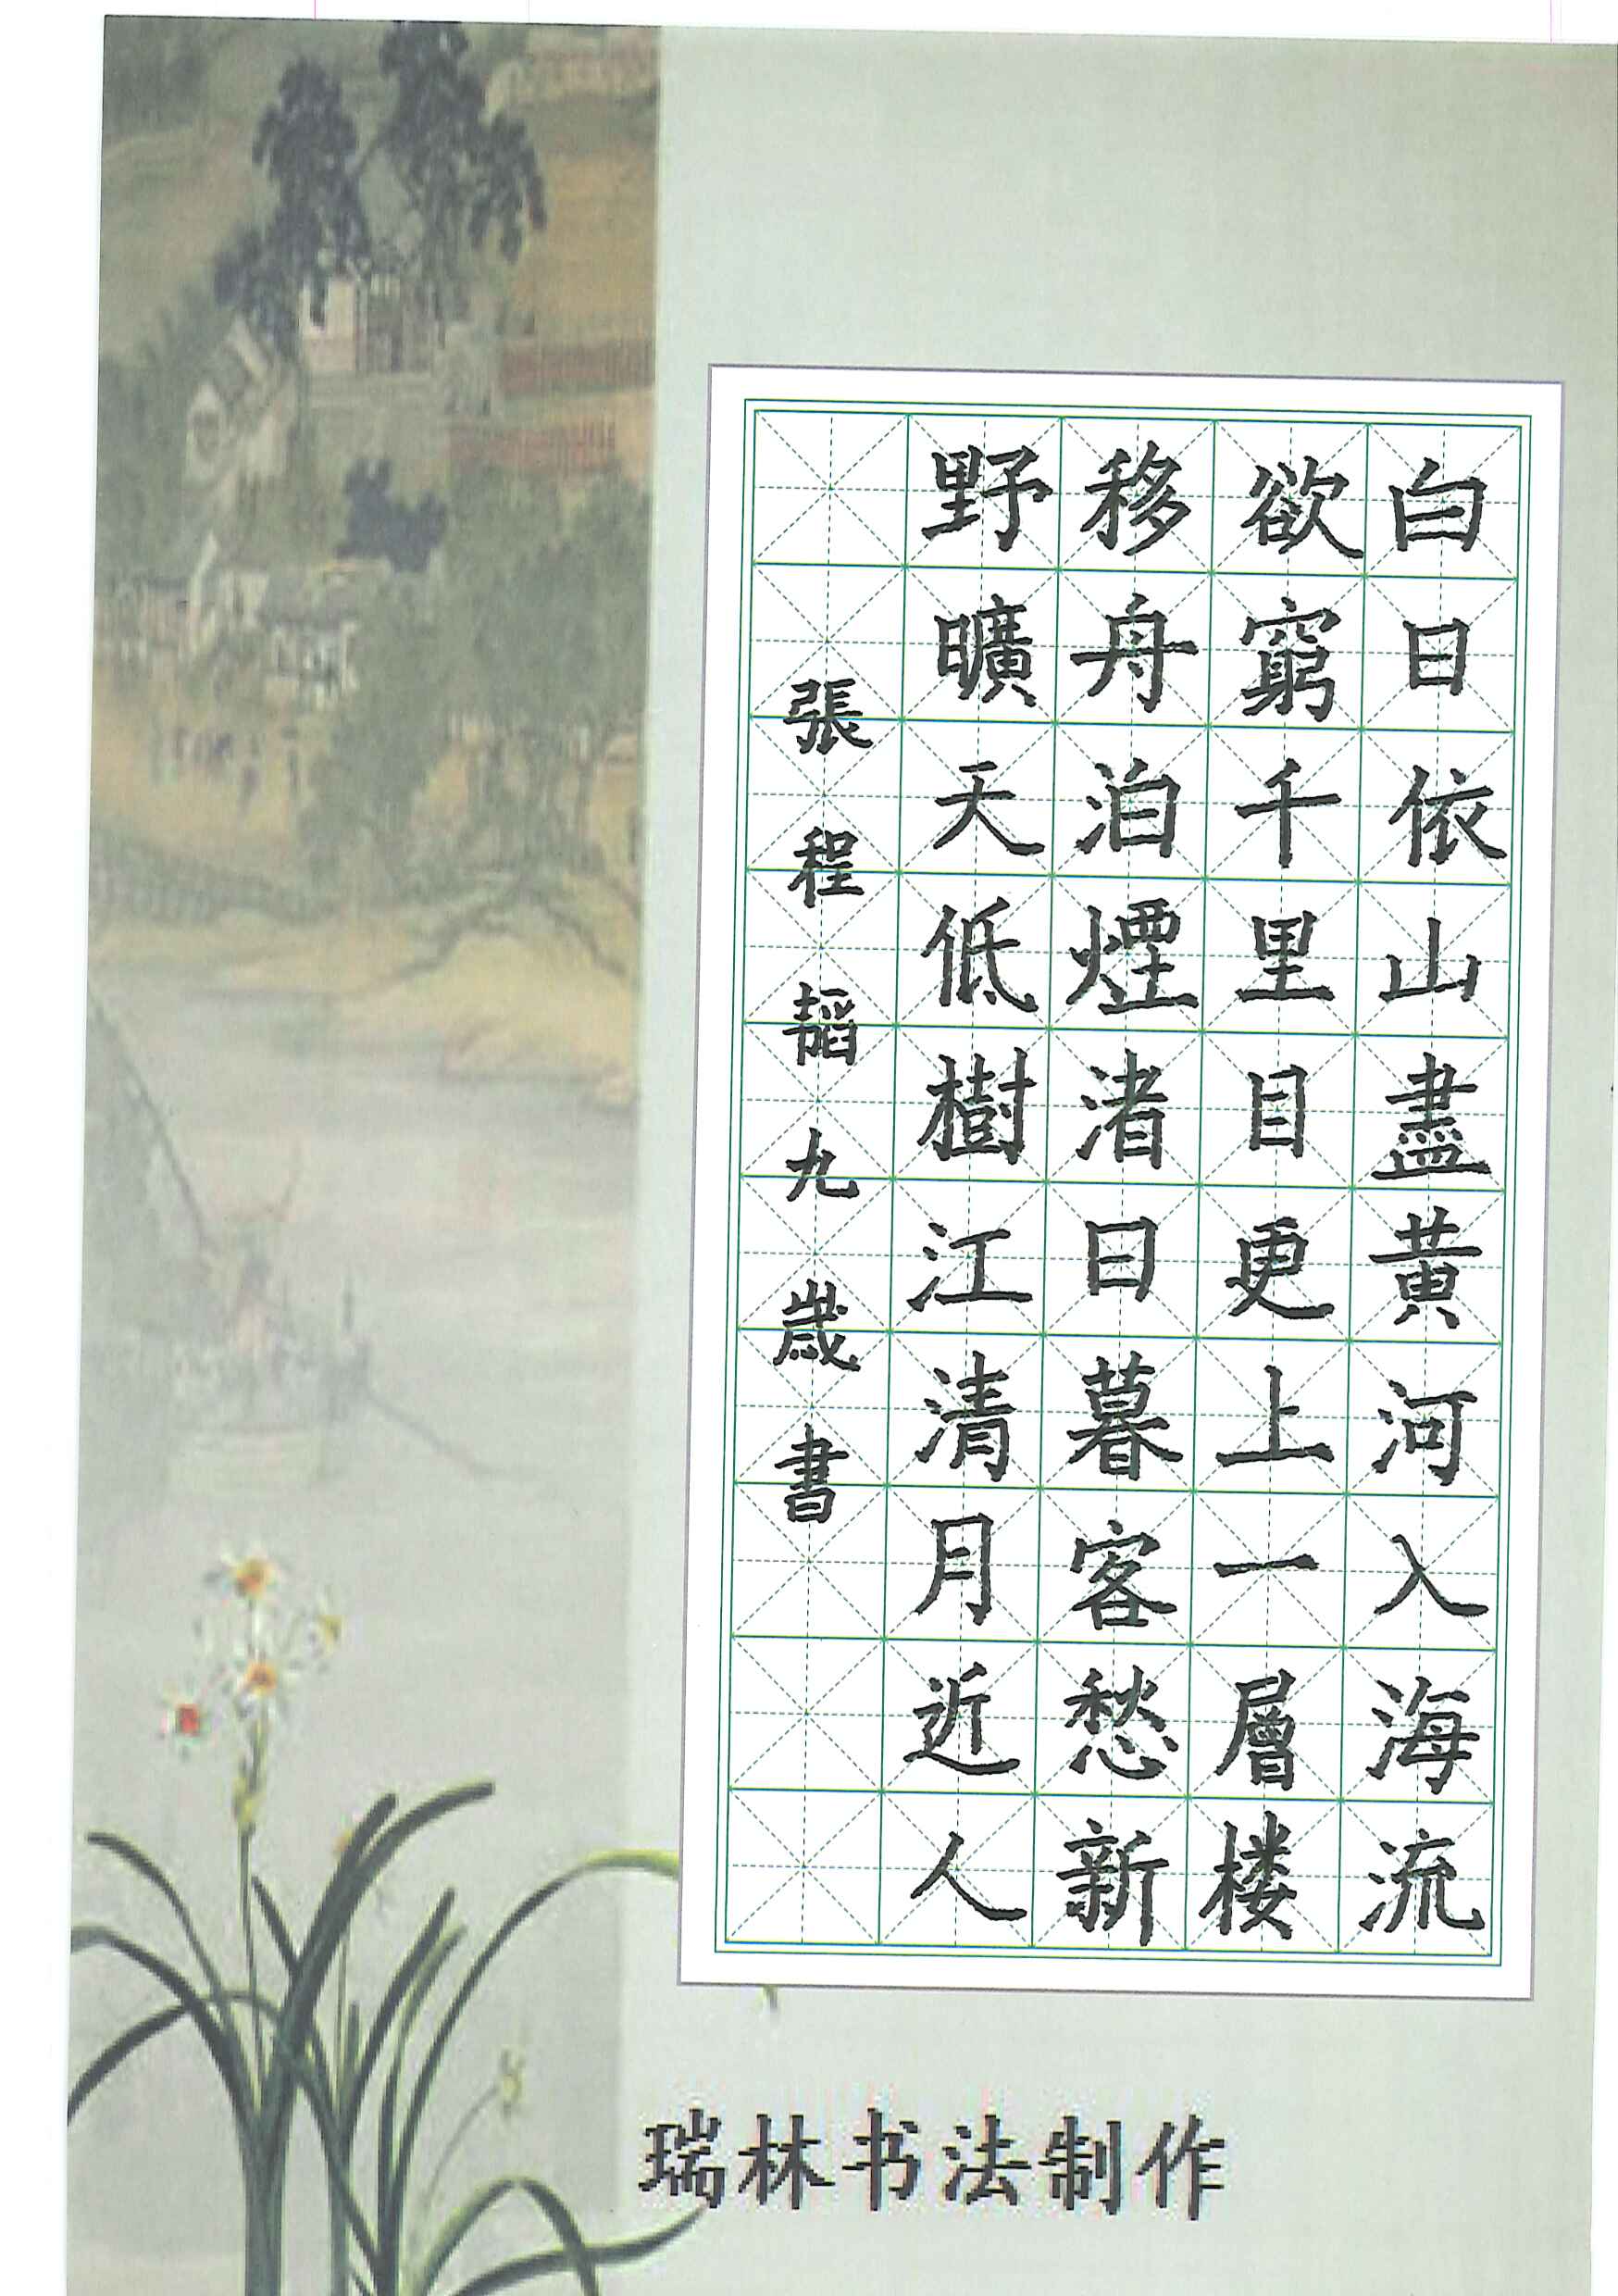 白日依山盡黃河入海流
欲窮千里目更上一層楼
移舟泊煙渚日暮客愁新
野曠天低樹江清月近人
張程韜九歲書
瑞林书法制作